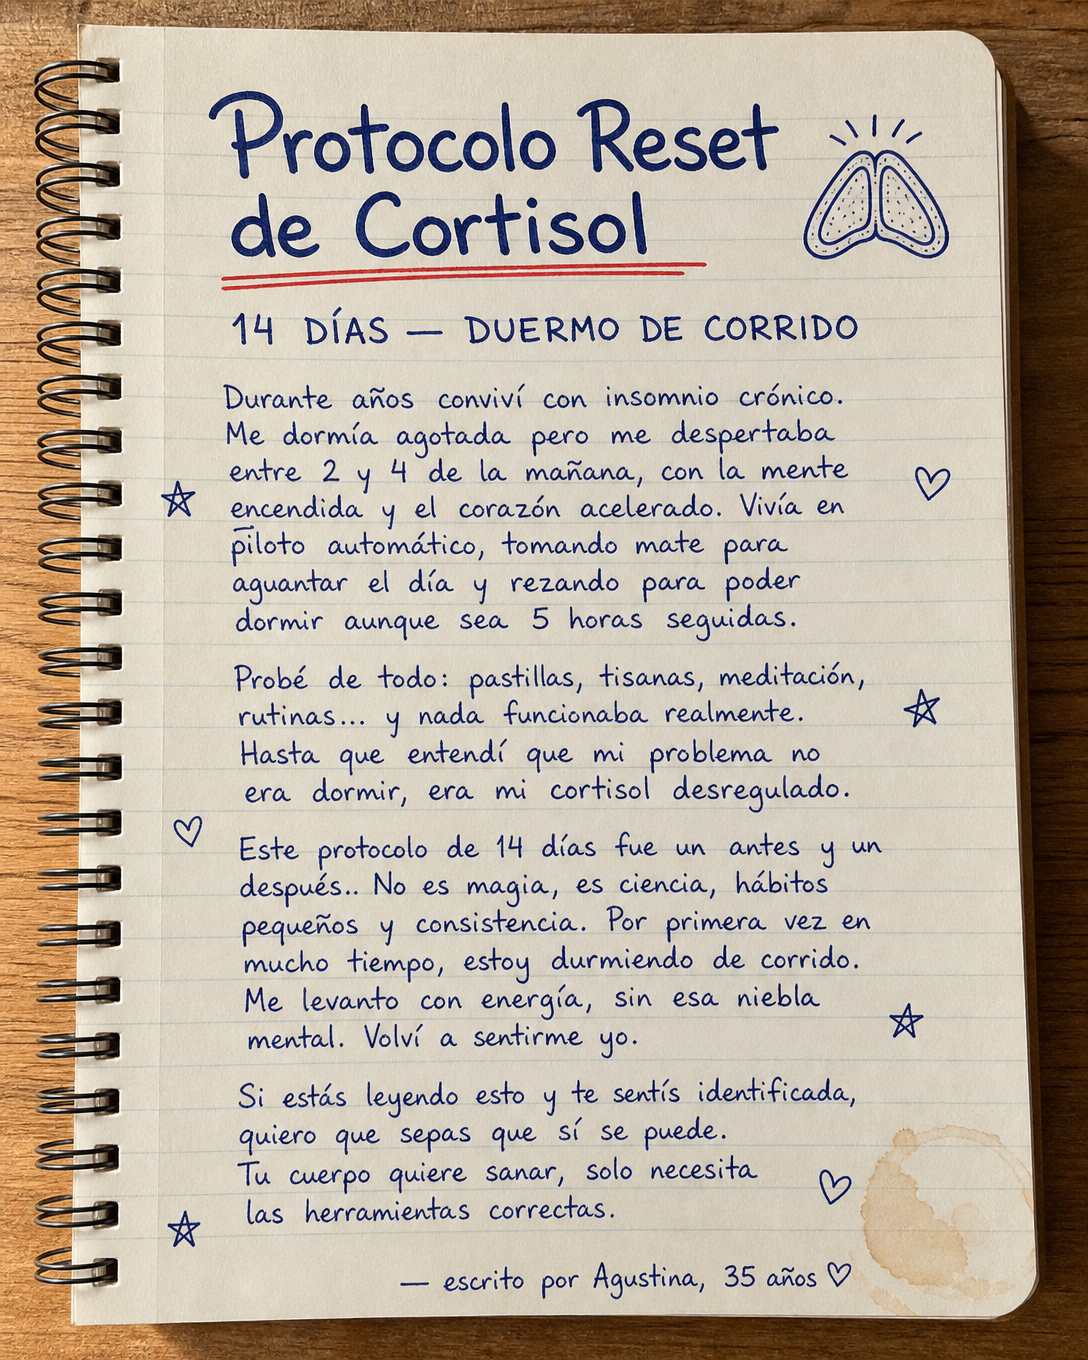 Protocolo Reset
de Cortisol
14 DÍAS — DUERMO DE CORRIDO
Durante años conviví con insomnio crónico.
Me dormía agotada pero me despertaba
entre 2 y 4 de la mañana, con la mente
encendida y el corazón acelerado. Vivía en
piloto automático, tomando mate para
aguantar el día y rezando para poder
dormir aunque sea 5 horas seguidas.
Probé de todo: pastillas, tisanas, meditación,
rutinas... y nada funcionaba realmente.
Hasta que entendí que mi problema no
era dormir, era mi cortisol desregulado.
Este protocolo de 14 días fue un antes y un
después.. No es magia, es ciencia, hábitos
pequeños y consistencia. Por primera vez en
mucho tiempo, estoy durmiendo de corrido.
Me levanto con energía, sin esa niebla
mental. Volví a sentirme yo.
Si estás leyendo esto y te sentís identificada,
quiero que sepas que sí se puede.
Tu cuerpo quiere sanar, solo necesita
las herramientas correctas.
— escrito por Agustina, 35 años ♡